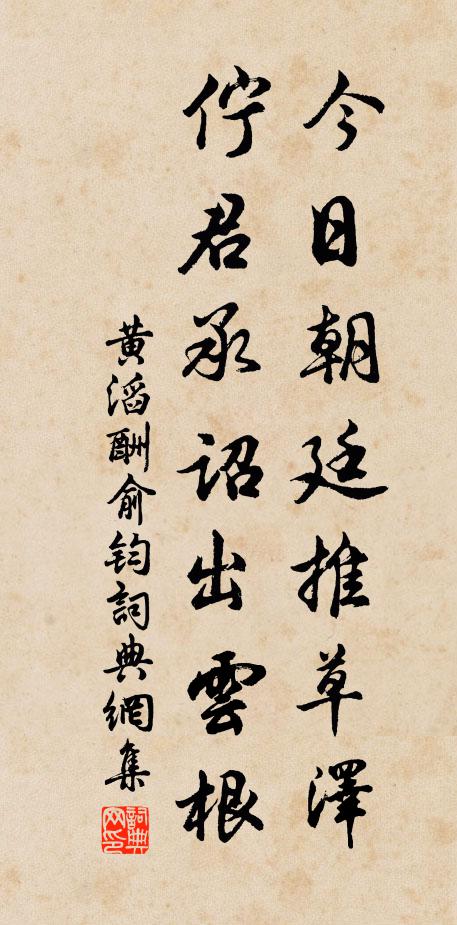 今日朝廷推草澤
佇君承詔出雲根
黃滔酬俞鈞詞典網集
詞典网印